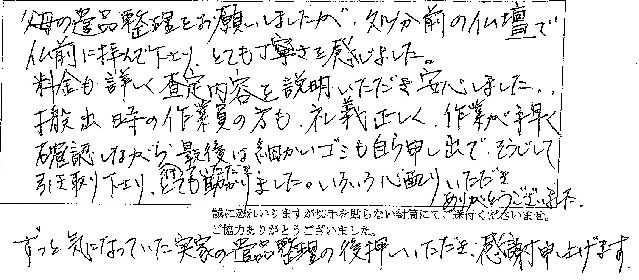 母の遺品整理をお願いしましたが、処分前の仏壇で
仏前に拝んで下さり、とても丁寧さを感じました。
料金も詳しく査定内容を説明いただき安心しました。
搬出時の作業員の方も、礼義正しく、作業が手早く
確認しながら最後は細かいゴミも自ら申し出で、そうじして
引き取り下さり、とても助かりました。いろいろ心配りいただき
ありがとうございました。
誠に恐れいりますが切手を貼らない封筒にてご送付くださいませ。
ご協力ありがとうございました。
ずっと気になっていた実家の遺品整理の後押しいただき、感謝申し上げます